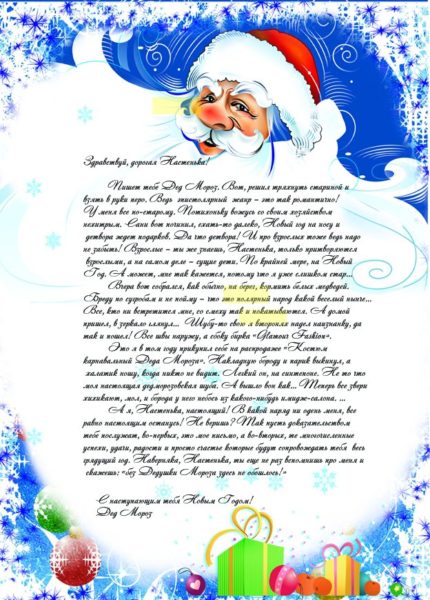 Здравствуй, дорогая Настенька!
Пишет тебе Дед Мороз. Вот, решил тряхнуть стариной и
взять в руки перо. Ведь эпистолярный жанр – это так романтично!
У меня все по-старому. Потихоньку вожусь со своим хозяйством
нехитрым. Сани вот починил, ехать-то далеко, Новый год на носу и
детвора ждет подарков. Да что детвора! И про взрослых тоже ведь надо
не забыть! Взрослые – ты же знаешь, Настенька, только притворяются
взрослыми, а на самом деле – сущие дети. По крайней мере, на Новый
Год. А может, мне так кажется, потому что я уже слишком стар...
Вчера вот собрался, как обычно, на берег, кормить белых медведей.
Бреду по сугробам и не пойму – что это полярный народ какой веселый нынче...
Все, кто ни встретится мне, со смеху так и покатываются. А домой
пришел, в зеркало глянул... Шубу-то свою я второпях надел наизнанку, да
так и пошел! Все швы наружу, а сбоку бирка «Glamour Fashion».
Это я в том году прикупил себе на распродаже «Костюм
карнавальный Деда Мороза». Накладную бороду и парик выкинул, а
халатик ношу, когда никто не видит. Легкий он, на синтепоне. Не то что
моя настоящая дедморозовская шуба. А вышло вон как... Теперь все звери
хихикают, мол, и борода у него небось из какого-нибудь имидж-салона. ...
А я, Настенька, настоящий! В какой наряд ни одень меня, все
равно настоящим останусь! Не веришь? Так пусть доказательством
тебе послужат, во-первых, это мое письмо, а во-вторых, те многочисленные
успехи, удачи, радости и просто счастье которые будут сопровождать тебя весь
грядущий год. Наверняка, Настенька, ты еще не раз вспомнишь про меня и
скажешь: «без Дедушки Мороза здесь не обошлось!»
С наступающим тебя Новым Годом!
Дед Мороз